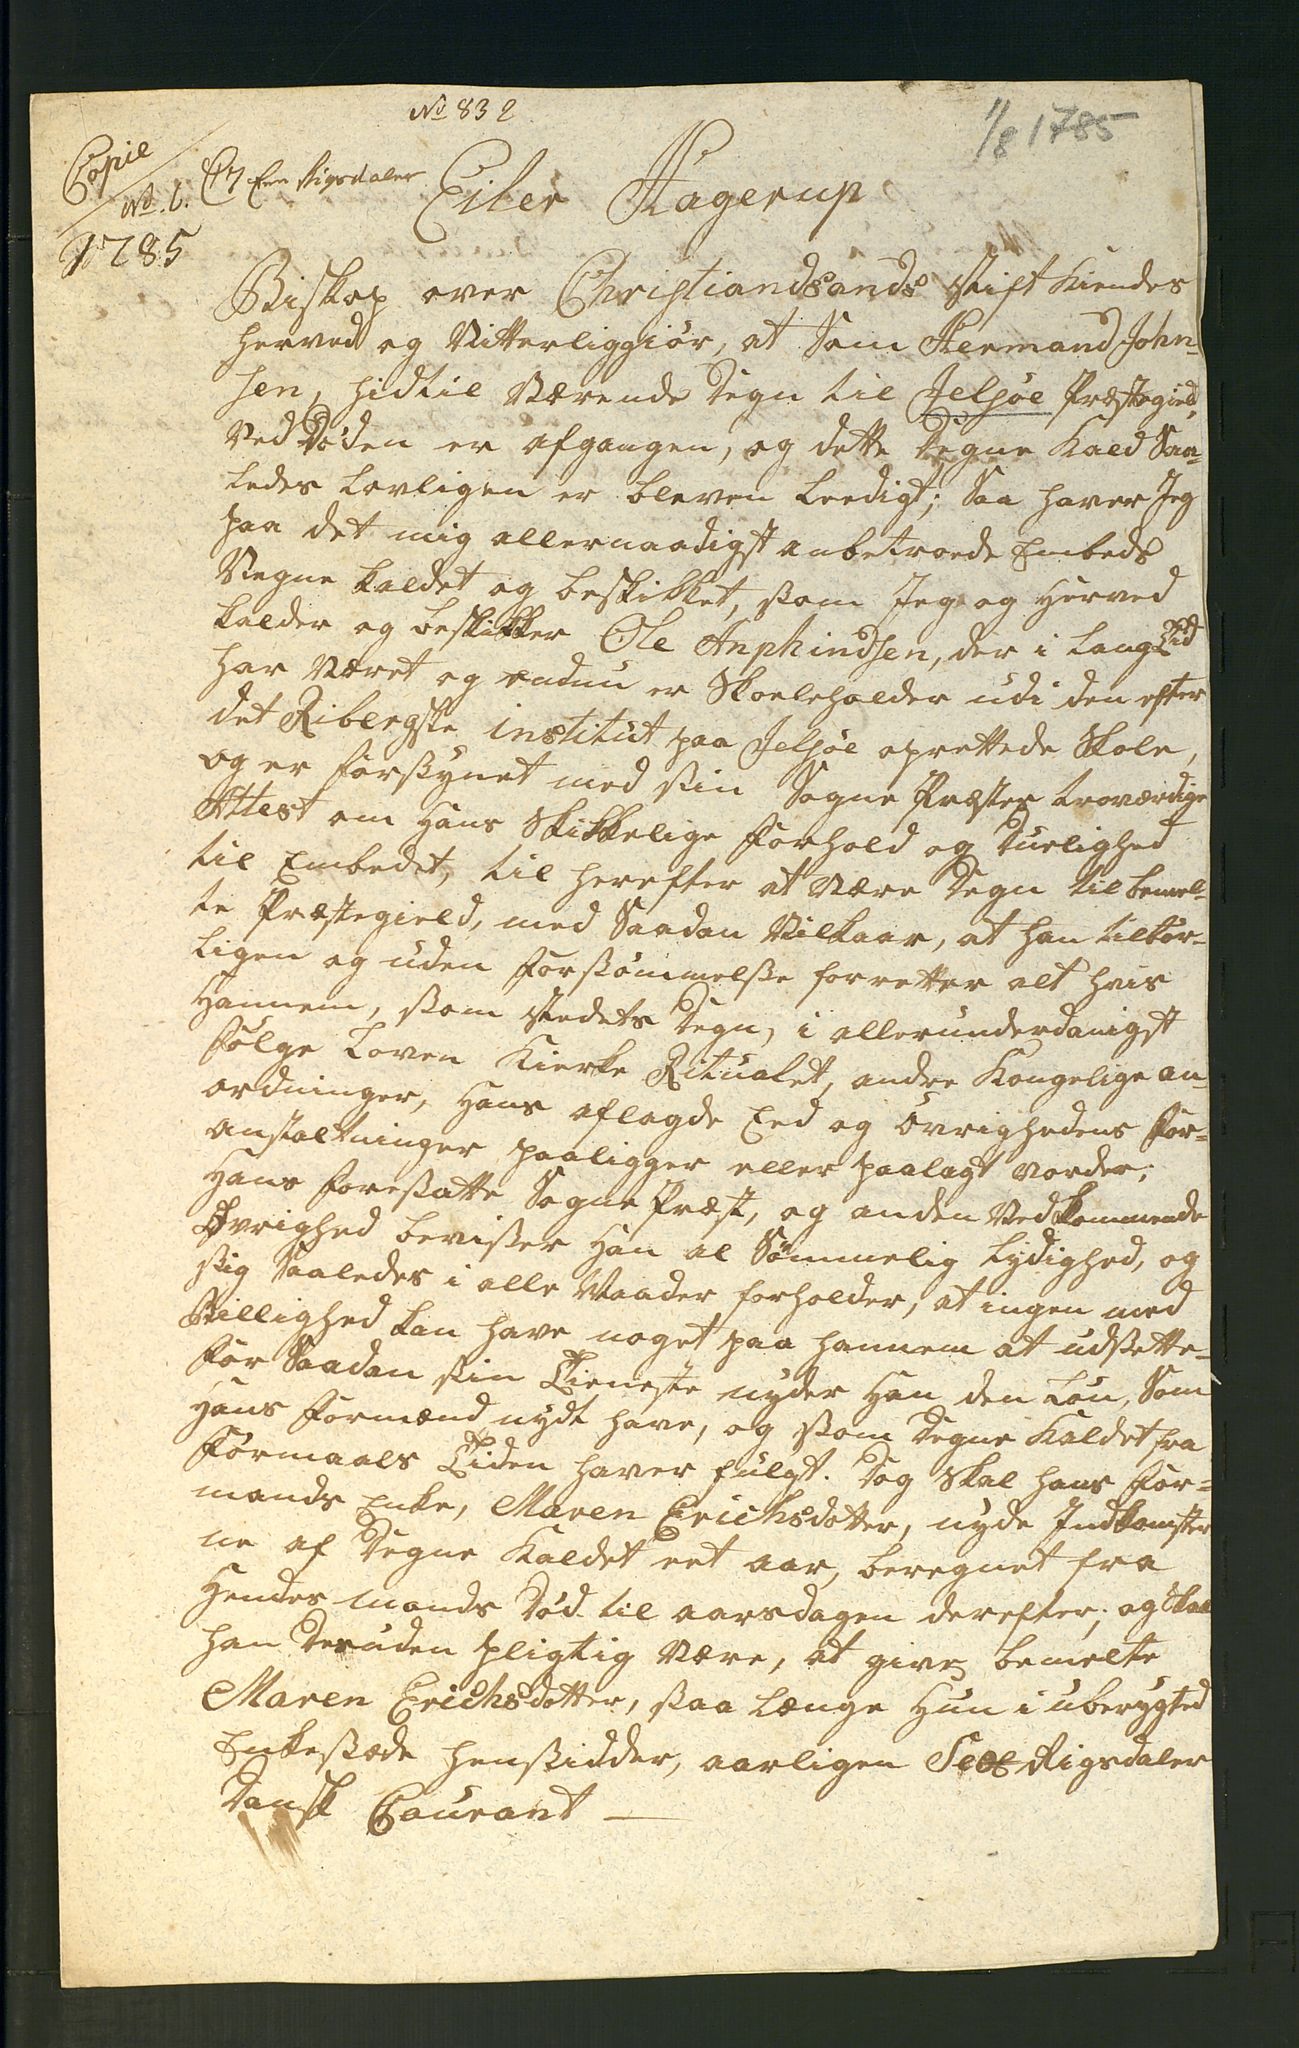 No 832
1/8 1785
Copie
No. 6. C7 Een Rigsdaler
1785
Eiler Hagerup
Biskop over Christiandsands Stift Kiendes
herved og Vitterliggiör, at Som Hermand John-
sen, hidtil Værende Degn til Jelsøe Præstegield,
ved Döden er afgangen, og dette Degne Kald Saa-
ledes Lovligen er bleven Leedigt; Saa haver Jeg
paa det mig allernaadigst anbetroede Embeds
Vegne kaldet og beskikket, som Jeg og herved
kalder og beskikker Ole Anphindsen, der i Lang Tid
har Været og endnu er Skoeleholder udi den efter
det Ribergske institut paa Jelsøe oprettede Skole,
og er forsynet med sin Sogne Præstes troværdige
Attest om Hans Skikkelige Forhold og Duelighed
til Embedet, til herefter at Være Degn til bemel-
te Præstegield, med Saadan Vilkaar, at han tilbör-
ligen og uden Forsömmelse forretter alt hvis
Hannem, som Stedets Degn, i allerunderdanigst
Fölge Loven Kierke Ritualet, andre Kongelige an-
ordninger, Hans aflagde Eed og Övrighedens For-
anstaltninger paaligger eller paalagt vorder;
Hans Foresatte Sogne Præst, og anden Vedkommende
Øvrighed beviser Han al Sömmelig Lydighed, og
sig Saaledes i alle Maader forholder, at ingen med
Billighed kan have noget paa hannem at udsette-
For Saadan sin Tieneste nyder Han den Lön, Som
Hans Formænd nydt have, og som Degne Kaldet fra
Formaals Tiden haver fulgt. Dog Skal hans For-
mands Enke, Maren Erichsdotter, nyde Indkomster
ne af Degne Kaldet eet aar, beregnet fra
Hendes mands Död til aarsdagen derefter; og Skal
han desuden pligtig Være, at give bemelte
Maren Erichsdotter, saa Længe Hun i uberygted
Enkesæde hensidder, aarligen Sex Rigsdaler
Dansk Courant —